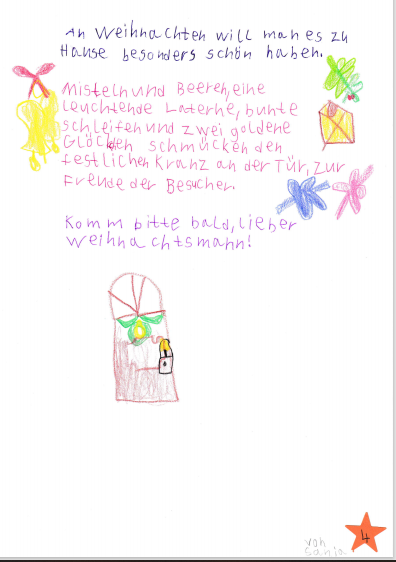 An Weihnachten will man es zu
Hause besonders schön haben.
Misteln und Beeren, eine
leuchtende Laterne, bunte
schleifen und zwei goldene
Glöckchen schmücken den
festlichen Kranz an der Tür, zur
Freude der Besucher.
Komm bitte bald, lieber
Weihnachtsmann!
von
Sanja
4